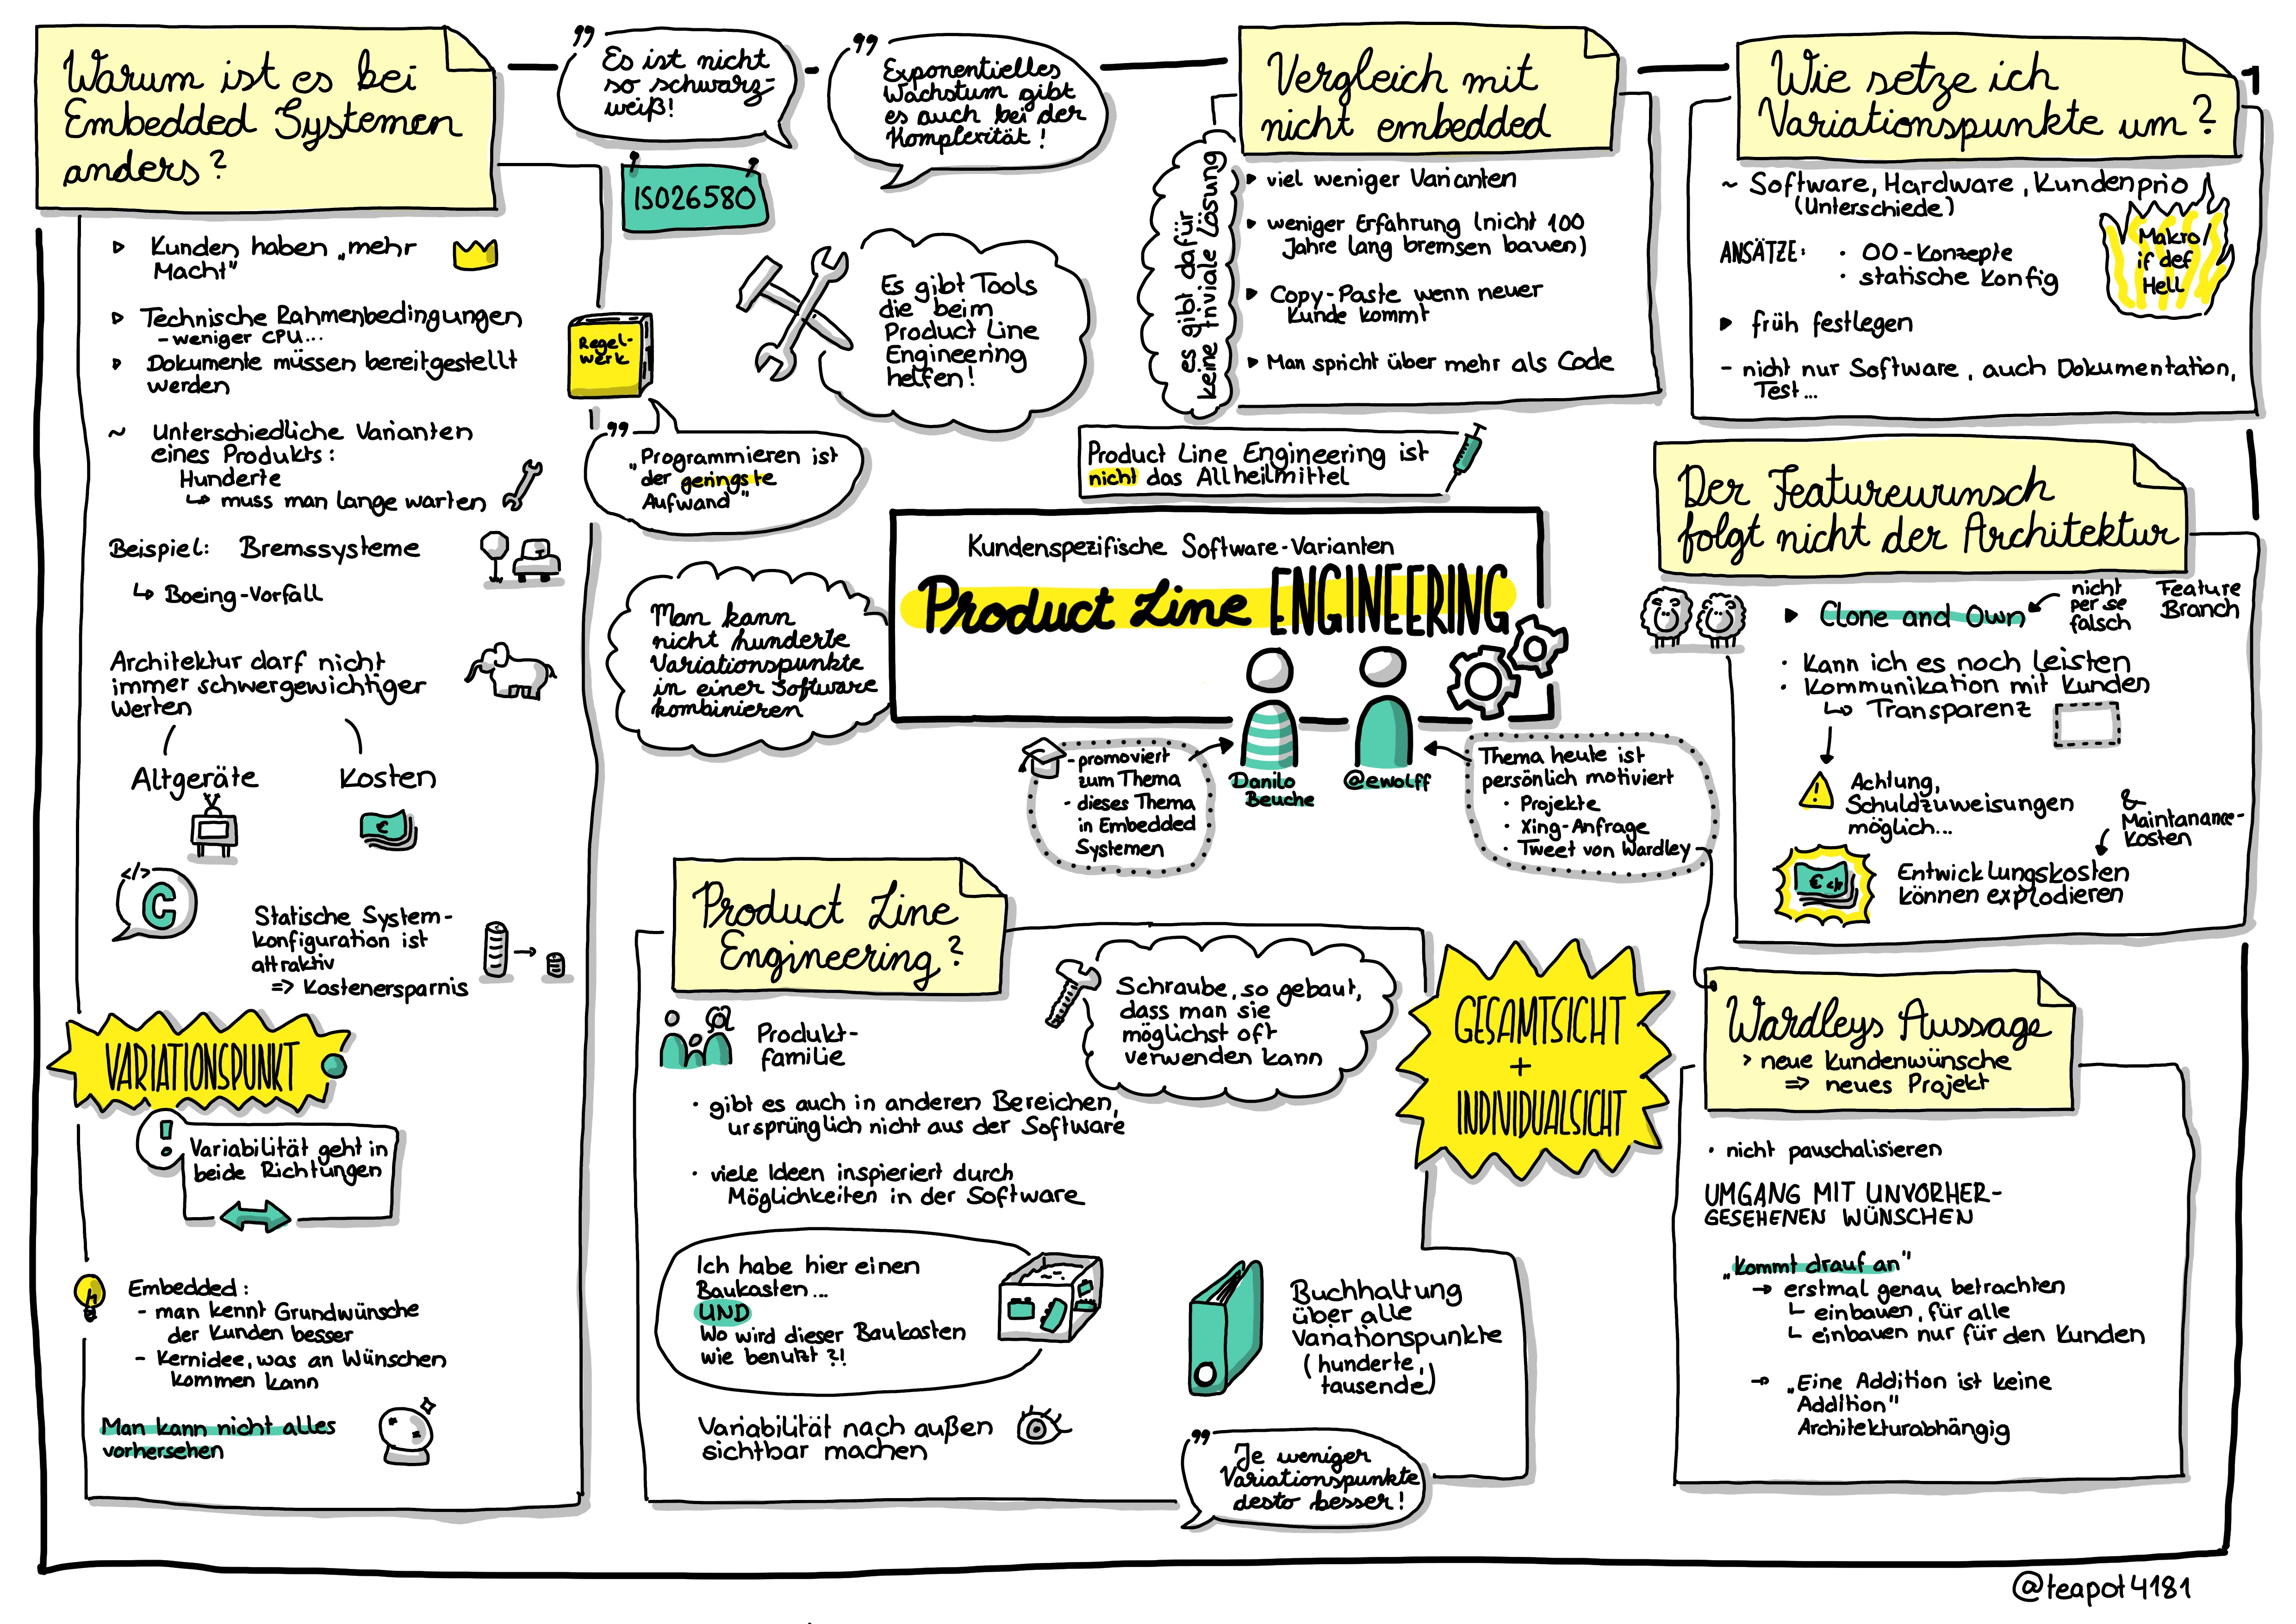 Warum ist es bei
Embedded Systemen
anders?
Kunden haben „mehr
Macht"
Technische Rahmenbedingungen
- weniger CPU...
Dokumente müssen bereitgestellt
werden
~ Unterschiedliche Varianten
eines Produkts:
Hunderte
↳ muss man lange warten
Beispiel: Bremssysteme
↳ Boeing-Vorfall
Architektur darf nicht
immer schwergewichtiger
werten
Altgeräte
Kosten
€
</>
C
Statische System-
konfiguration ist
attraktiv
=> Kostenersparnis
VARIATIONSPUNKT
!
Variabilität geht in
beide Richtungen
Embedded:
- man kennt Grundwünsche
der Kunden besser
- Kernidee, was an Wünschen
kommen kann
Man kann nicht alles
vorhersehen
Es ist nicht
so schwarz-
weiß!
Exponentielles
Wachstum gibt
es auch bei der
Komplexität!
ISO26580
Regel-
werk
Es gibt Tools
die beim
Product Line
Engineering
helfen!
„Programmieren ist
der geringste
Aufwand"
Man kann
nicht hunderte
Variationspunkte
in einer Software
kombinieren
Vergleich mit
nicht embedded
es gibt dafür
keine triviale Lösung
viel weniger Varianten
weniger Erfahrung (nicht 100
Jahre lang bremsen bauen)
Copy-Paste wenn neuer
Kunde kommt
Man spricht über mehr als Code
Product Line Engineering ist
nicht das Allheilmittel
Kundenspezifische Software-Varianten
Product Line ENGINEERING
- promoviert
zum Thema
· dieses Thema
in Embedded
Systemen
Danilo
Beuche
@ewolff
Thema heute ist
persönlich motiviert
· Projekte
· Xing-Anfrage
· Tweet von Wardley
Product Line
Engineering?
Produkt-
familie
Schraube, so gebaut,
dass man sie
möglichst oft
verwenden kann
· gibt es auch in anderen Bereichen,
ursprünglich nicht aus der Software
· viele Ideen inspieriert durch
Möglichkeiten in der Software
Ich habe hier einen
Baukasten...
UND
Wo wird dieser Baukasten
wie benutzt?!
Variabilität nach außen
sichtbar machen
GESAMTSICHT
+
INDIVIDUALSICHT
Buchhaltung
über alle
Variationspunkte
(hunderte,
tausende)
Je weniger
Variationspunkte
desto besser!
1
Wie setze ich
Variationspunkte um?
~ Software, Hardware, Kundenprio
(Unterschiede)
ANSÄTZE: · OO-Konzepte
· statische Konfig
Makro/
if def
Hell
früh festlegen
- nicht nur Software, auch Dokumentation,
Test...
Der Featurewunsch
folgt nicht der Architektur
Clone and Own
nicht
per se
falsch
Feature
Branch
· Kann ich es noch leisten
· Kommunikation mit Kunden
↳ Transparenz
!
Achtung,
Schuldzuweisungen
möglich...
&
Maintanance-
kosten
€ </>
Entwicklungskosten
können explodieren
Wardleys Aussage
> neue Kundenwünsche
=> neues Projekt
· nicht pauschalisieren
UMGANG MIT UNVORHER-
GESEHENEN WÜNSCHEN
„kommt drauf an"
→ erstmal genau betrachten
↳ einbauen, für alle
↳ einbauen nur für den Kunden
→ „Eine Addition ist keine
Addition"
Architekturabhängig
@teapot4181